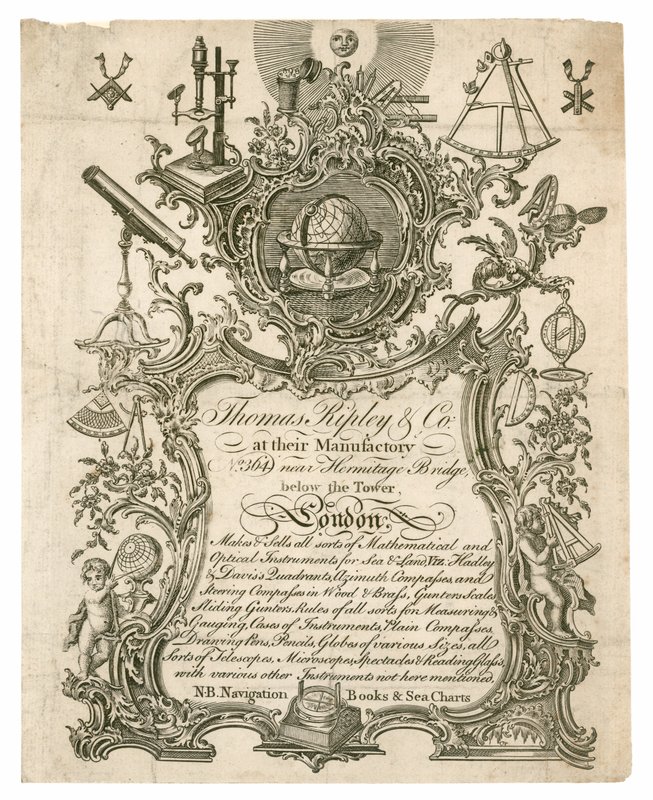 Thomas Ripley & Co.
at their Manufactory
No. 364 near Hermitage Bridge,
below the Tower,
London,
Makes & Sells all sorts of Mathematical and
Optical Instruments for Sea & Land, Viz. Hadley
& Davis's Quadrants, Azimuth Compasses, and
Steering Compasses in Wood & Brass, Gunters Scales
Sliding Gunters, Rules of all sorts for Measuring &
Gauging, Cases of Instruments, Plain Compasses
Drawing Pens, Pencils, Globes of various Sizes, all
Sorts of Telescopes, Microscopes, Spectacles & Reading Glass's,
with various other Instruments not here mentioned.
N.B. Navigation Books & Sea Charts